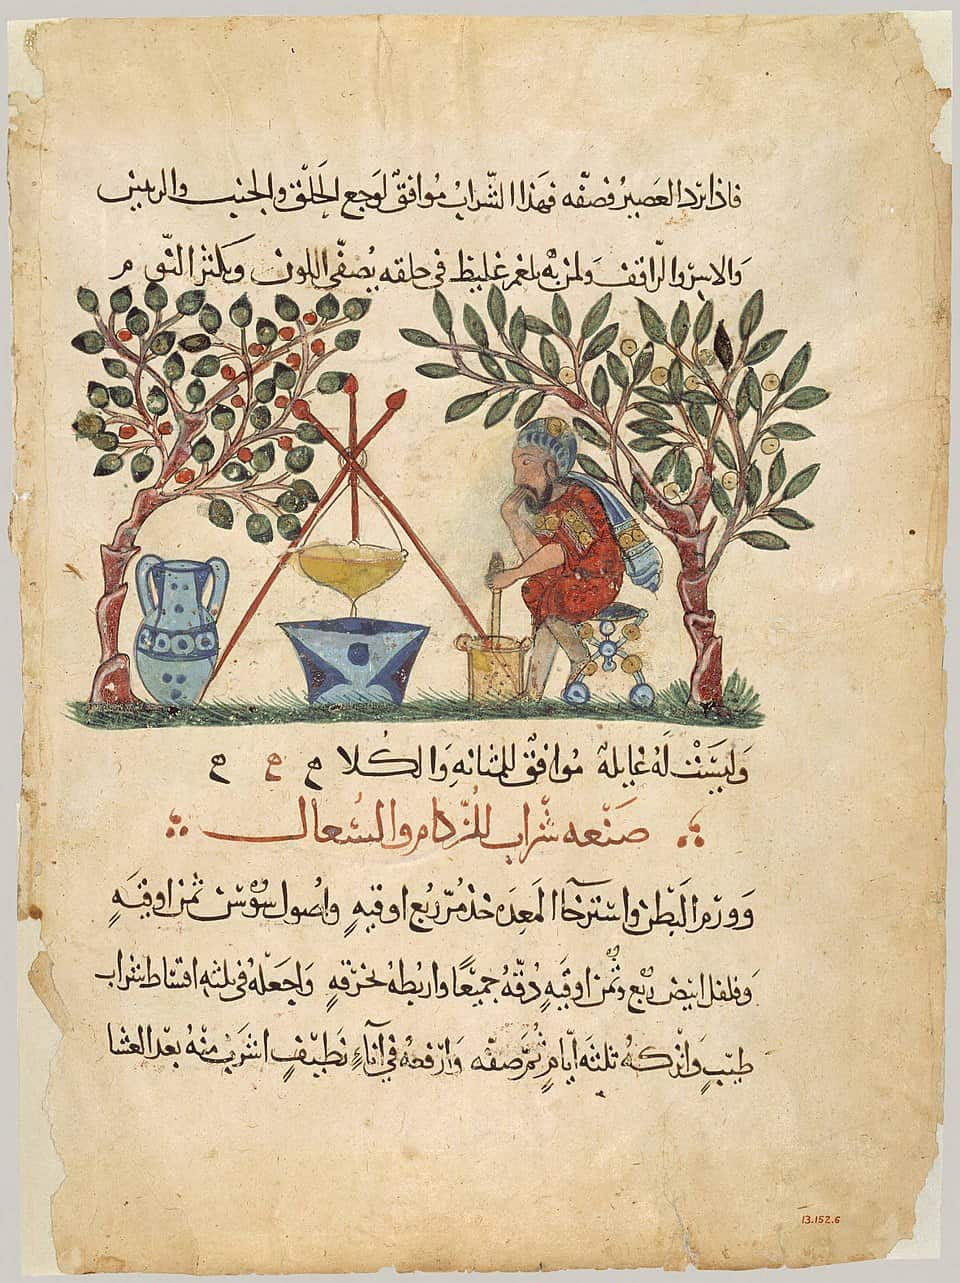 فاذا برد العصير فصفه فهذا الشّراب مُوافقٌ لوجع الحَلق والجنب والريس
وَالاسر والرّاقف وَلمن بهٌ بلغم غليظ في حلقه يُصفّى اللون وَيكثر النّوم
وَليسَتْ لَهُ غايلهٌ مُوافقٌ للمثانهِ وَالكُلا ح ح ح
صَنْعه شَراب للزّكام والسُعال
وَورم البَطن واسْترخآ المعِدَه خذ مُرّ ربُع اوقيهٍ واصُول سُوسَن ثمن اوقيَهٍ
وَفلفل ابيَض ربُع وثُمْن اوقيَهٍ دُقّهُ جميْعًا واربطهُ بخرقهٍ وَاجعَلهُ في ثلثه اقسَاط شراب
طيّبٍ وَاتركهُ ثلثه ايَامٍ ثُمّ صفّه وَارفعهُ في انآءٍ نَظيفٍ اشرَب منْهُ بعْد العشا
13.152.6